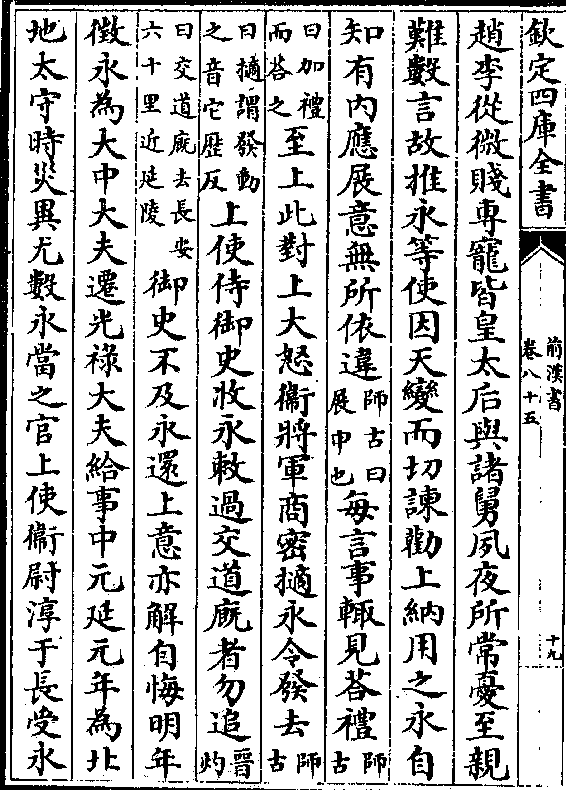 欽定四庫全書
前漢書
卷八十五
十九
趙李從微賤專寵皆皇太后與諸舅夙夜所常憂至親
難數言故推永等使因天變而切諫勸上納用之永自
知有内應展意無所依違師古曰展申也每言事輒見荅禮師古
曰加禮而荅之至上此對上大怒衞將軍商密擿永令發去師古
曰擿謂發動之音它歴反上使侍御史收永敕過交道廐者勿追晉灼
曰交道廐去長安六十里近延陵御史不及永還上意亦解自悔明年
徴永為大中大夫遷光祿大夫給事中元延元年為北
地太守時災異尤數永當之官上使衞尉淳于長受永